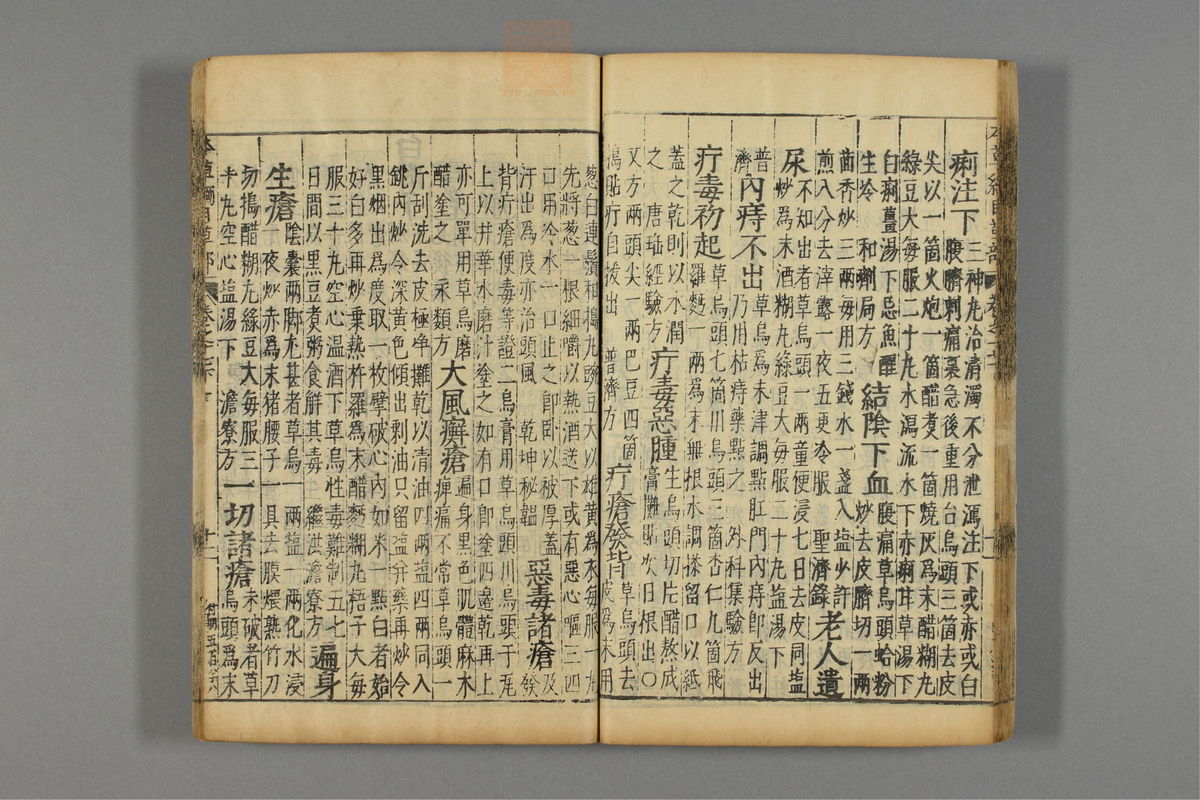 痢注下三神丸治清濁不分泄瀉注下或赤或白
腹臍刺痛裏急後重用台烏頭三箇去皮
尖以一箇火炮一箇醋煑一箇燒灰爲末醋糊丸
綠豆大每服二十丸水瀉流水下赤痢甘草湯下
白痢薑湯下忌魚腥
生冷 和劑局方 結陰下血腹痛草烏頭蛤粉
炒去皮臍切一兩
茴香炒三兩每用三錢水一盞入塩少許
煎八分去滓露一夜五更冷服 聖濟錄 老人遺
尿不知出者草烏頭一兩童便浸七日去皮同塩
炒爲末酒糊丸綠豆大每服二十丸塩湯下
普濟 內痔不出草烏爲末津調點肛門內痔卽反出
乃用枯痔藥點之 外科集驗方
疔毒初起草烏頭七箇川烏頭三箇杏仁九箇飛
羅麪一兩爲末無根水調搽留口以紙
蓋之乾則以水潤
之 唐瑤經驗方 疔毒惡腫生烏頭切片醋熬成
膏攤貼次日根出○
又方兩頭尖一兩巴豆四箇
搗貼疔自拔出 普濟方 疔瘡發背草烏頭去
皮爲末用
葱白連鬚和搗丸豌豆大以雄黃爲衣每服一丸
先將葱一根細嚼以熱酒送下或有惡心嘔三四
口用冷水一口止之卽卧以被厚蓋
汗出爲度亦治頭風 乾坤秘韞 惡毒諸瘡及發
背疔瘡便毒等證二烏膏用草烏頭川烏頭于瓦
上以井華水磨汁塗之如有口卽塗四邊乾再上
亦可單用草烏磨
醋塗之 永類方 大風癬瘡遍身黑色肌體麻木
痹痛不常草烏頭一
斤刮洗去皮極净攤乾以清油四兩塩四兩同入
銚內炒令深黃色傾出剩油只留塩并藥再炒令
黑烟出爲度取一枚擘破心內如米一點白者始
好白多再炒乗熱杵羅爲末醋麪糊丸梧子大每
服三十丸空心温酒下草烏性毒難制五七
日間以黑豆煑粥食解其毒 繼洪澹寮方 遍身
生瘡陰囊兩脚尤甚者草烏一兩塩一兩化水浸
一夜炒赤爲末猪腰子一具去膜煨熟竹刀
切搗醋糊丸綠豆大每服三
十丸空心塩湯下 澹寮方 一切諸瘡未破者草
烏頭爲末